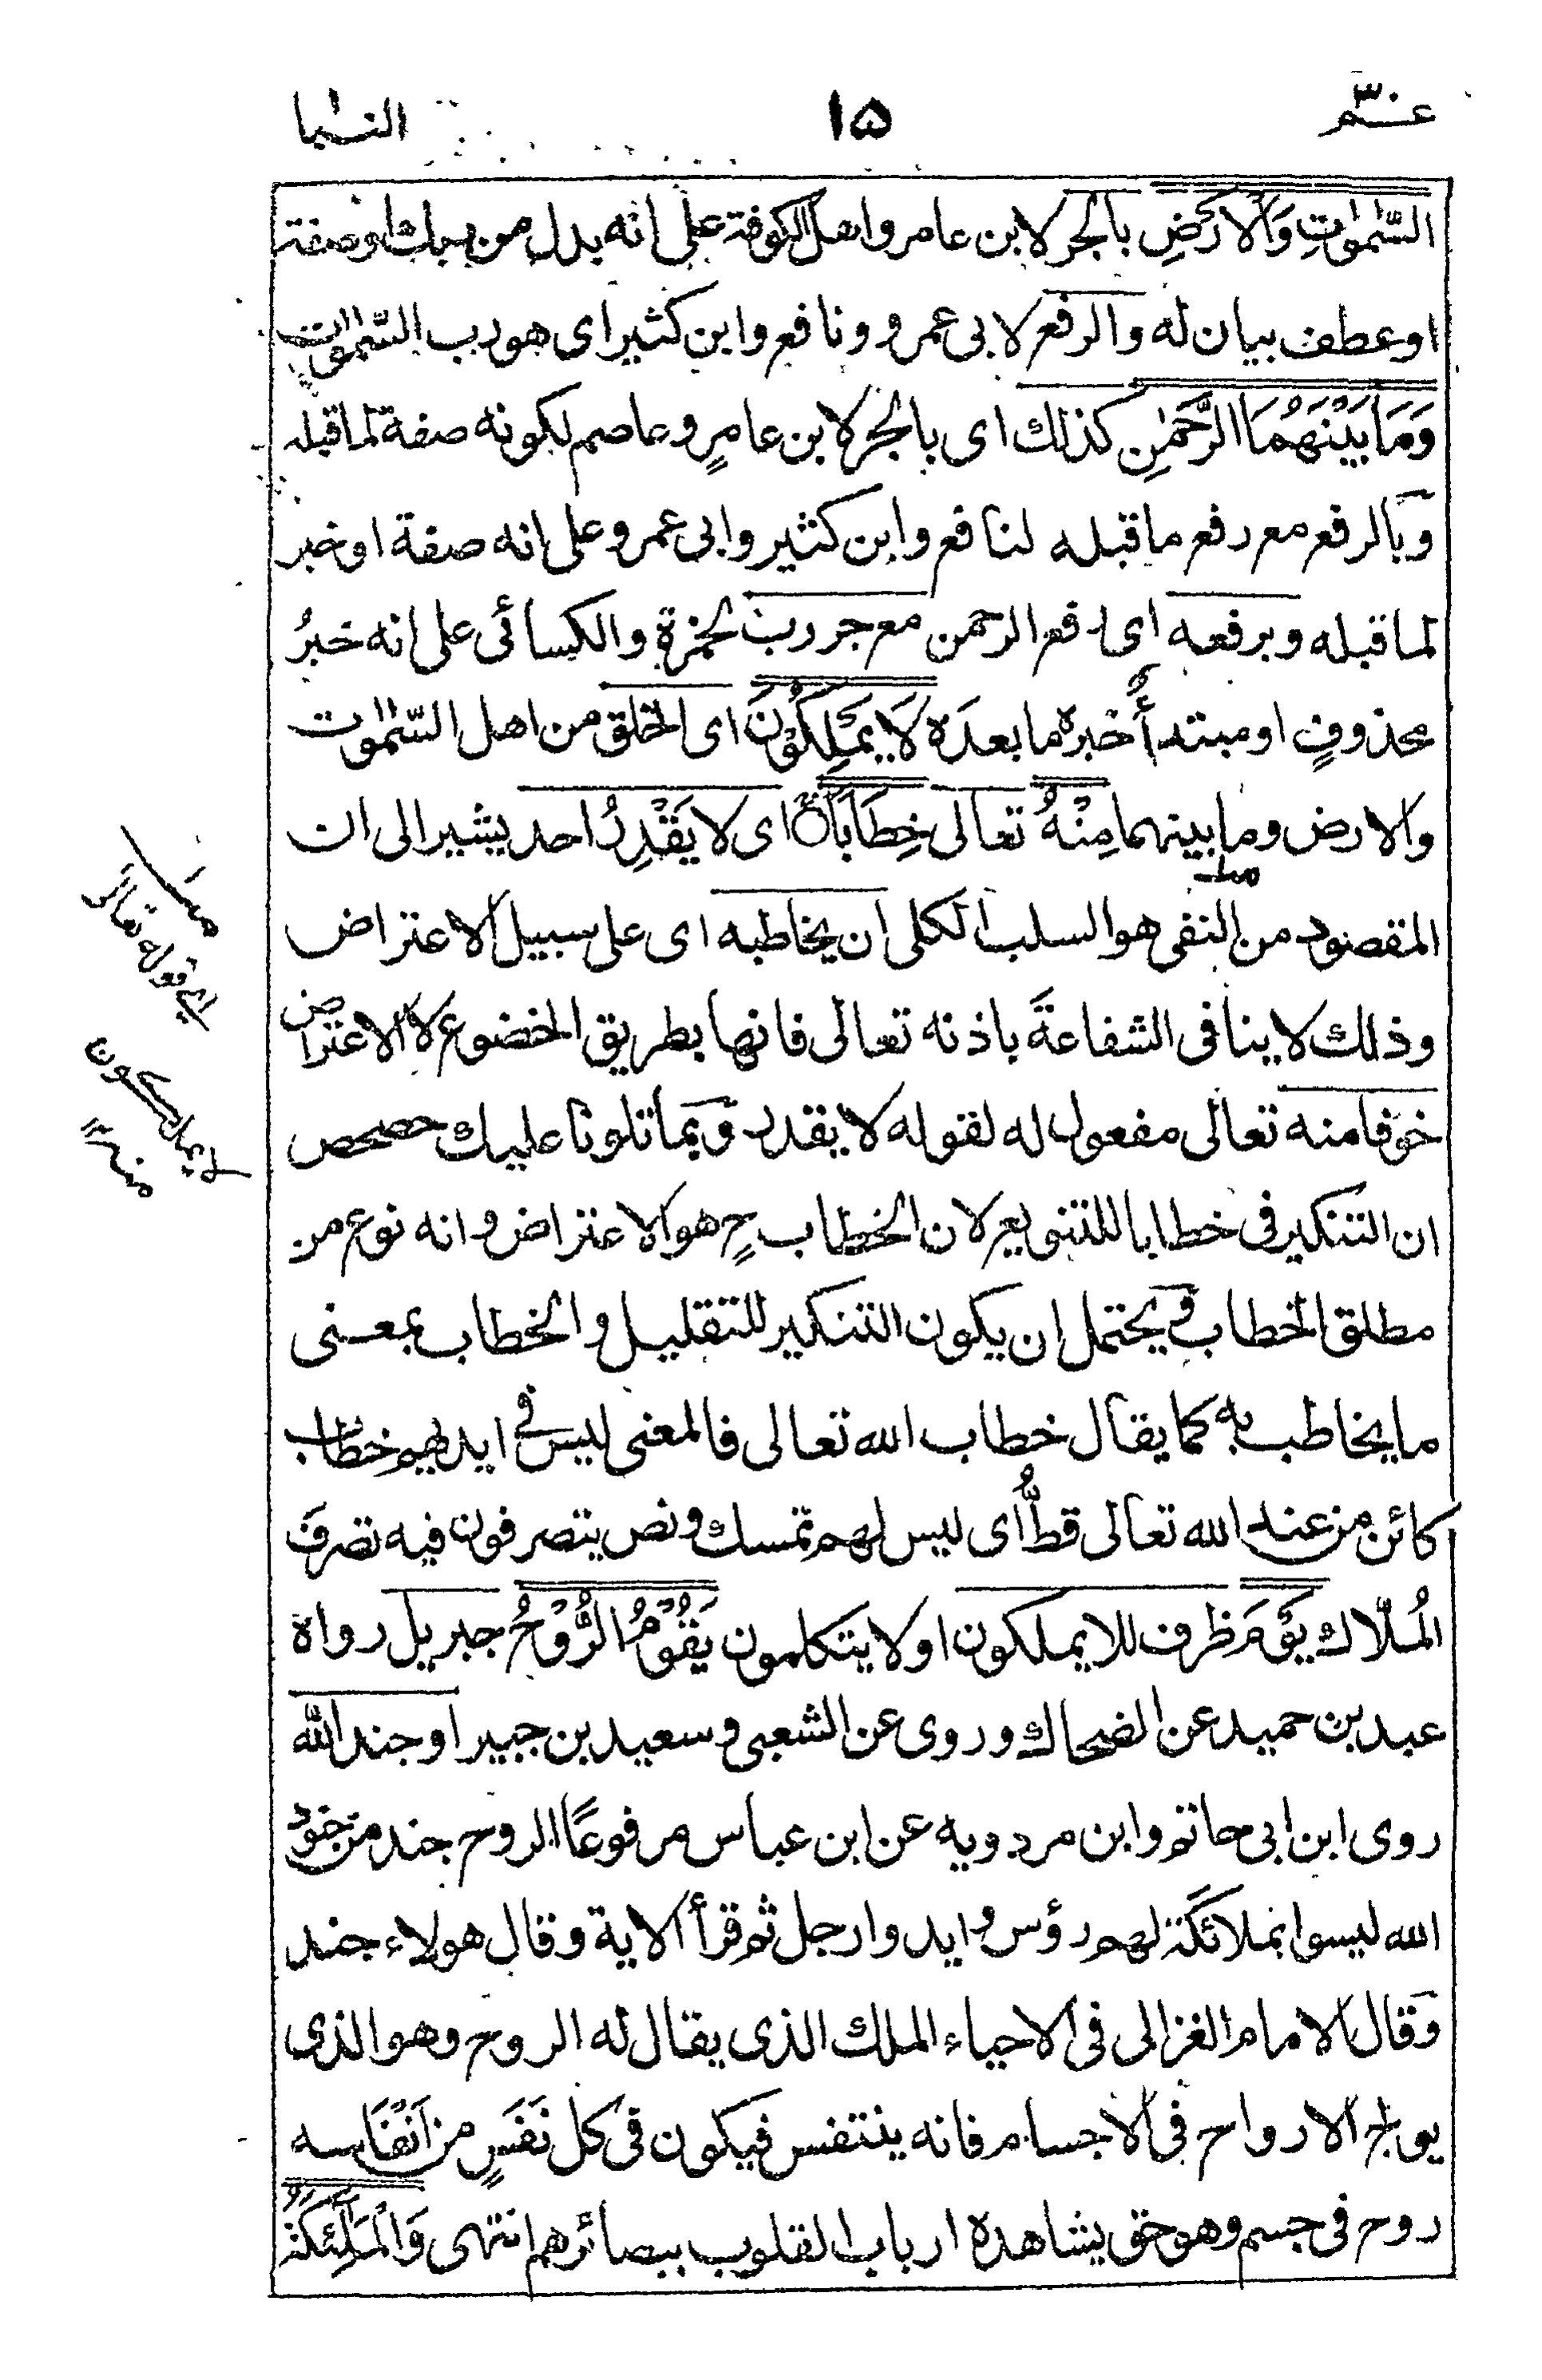 عم ٣٠
١٥
النبا
السَّمٰوٰتِ وَالْاَرْضِ بالجر لابن عامر واهل الكوفة على انه بدل من ربك او صفة
او عطف بيان له والرفع لابى عمرو ونافع وابن كثير اى هو رب السَّمٰوٰت
وَمَا بَيْنَهُمَا الرَّحْمٰنِ كذلك اى بالجر لابن عامرٍ وعاصم لكونه صفة لما قبله
وبالرفع مع رفع ما قبله لنافع وابن كثير وابى عمرو على انه صفة او خبر
لما قبله وبرفعه اى رفع الرحمن مع جر رب لحمزة والكسائى على انه خبرُ
محذوفٍ او مبتدأٌ خبره ما بعدَه لَا يَمْلِكُوْنَ اى الخلق من اهل السّمٰوٰت
والارض وما بينهما مِنْهُ تعالى خِطَابًا اى لا يَقْدِرُ احد يشير الى ان
المقصود من النفى هو السلب الكلى ان يخاطبه اى على سبيل الاعتراض
وذلك لا ينافى الشفاعةَ باذنه تعالى فانها بطريق الخضوع لا الاعتراض
خوفا منه تعالى مفعول له لقوله لا يقدر وبما تلونا عليك حصحص
ان التنكير فى خطابا للتنويع لان الخطاب ح هو الاعتراض وانه نوع من
مطلق الخطاب ويحتمل ان يكون التنكير للتقليل والخطاب بمعنى
ما يخاطب به كما يقال خطاب الله تعالى فالمعنى ليس فى ايديهم خطاب
كائن من عند الله تعالى قطُّ اى ليس لهم تمسك ونص يتصرفون فيه تصرفَ
المُلّاك يَوْمَ ظرف للا يملكون او لا يتكلمون يَقُوْمُ الرُّوْحُ جبريل رواه
عبد بن حميد عن الضحاك وروى عن الشعبى وسعيد بن جبير او جند الله
روى ابن ابى حاتم وابن مردويه عن ابن عباس مرفوعًا الروح جند من جنود
الله ليسوا بملائكة لهم رؤس وايد وارجل ثم قرأ الاية وقال هولاء جند
وقال الامام الغزالى فى الاحياء الملك الذى يقال له الروح وهو الذى
يولج الارواح فى الاجسام فانه يتنفس فيكون فى كل نَفَسٍ من اَنْفَاسه
روح فى جسم وهو حق يشاهده ارباب القلوب ببصائرهم انتهى وَالْمَلٰٓئِكَةُ
اى قوله تعالى
لا يملكون
منه